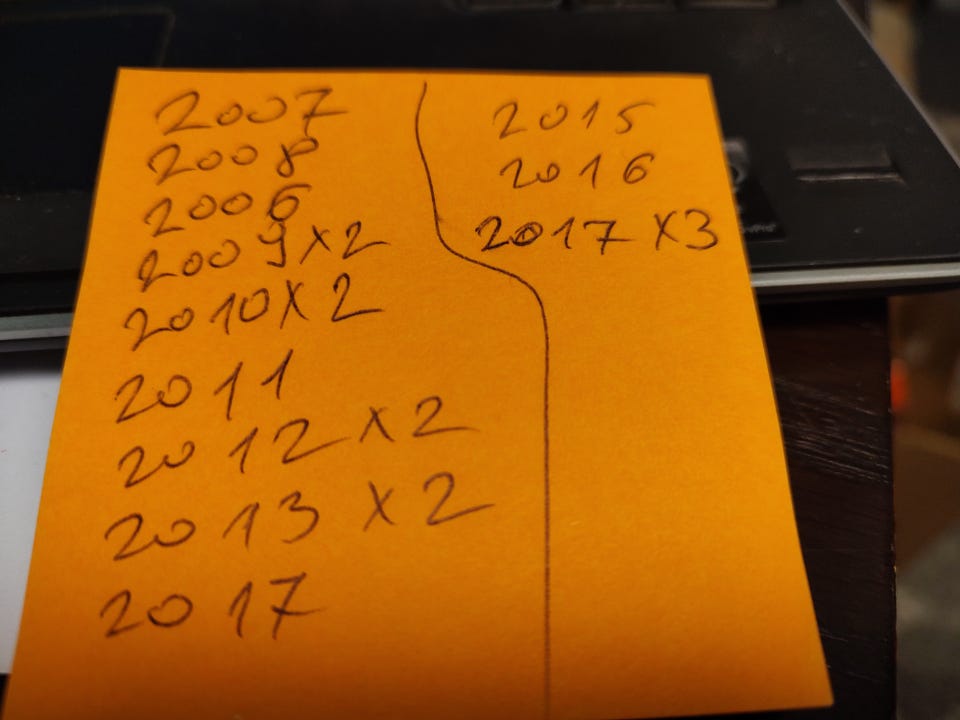 2007
2008
2006
2009 x2
2010 x 2
2011
2012 x 2
2013 x 2
2017
2015
2016
2017 x3